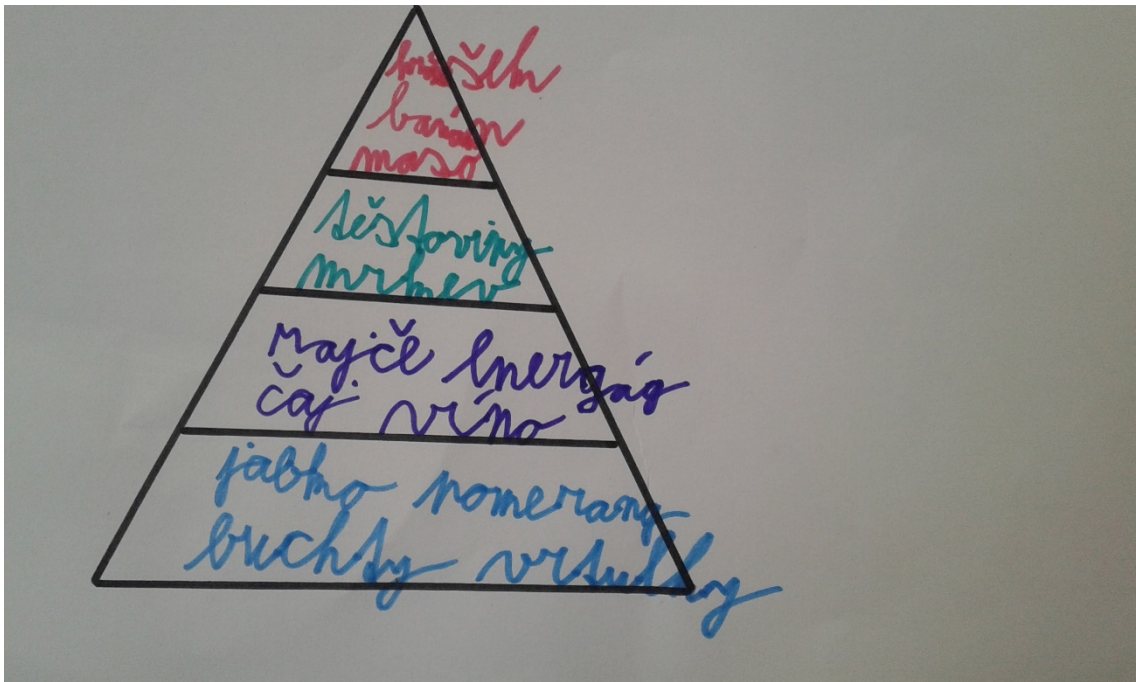 banán
maso
těstoviny
mrkev
rajče energág
čaj víno
jablko pomeranč
buchty vrtulky